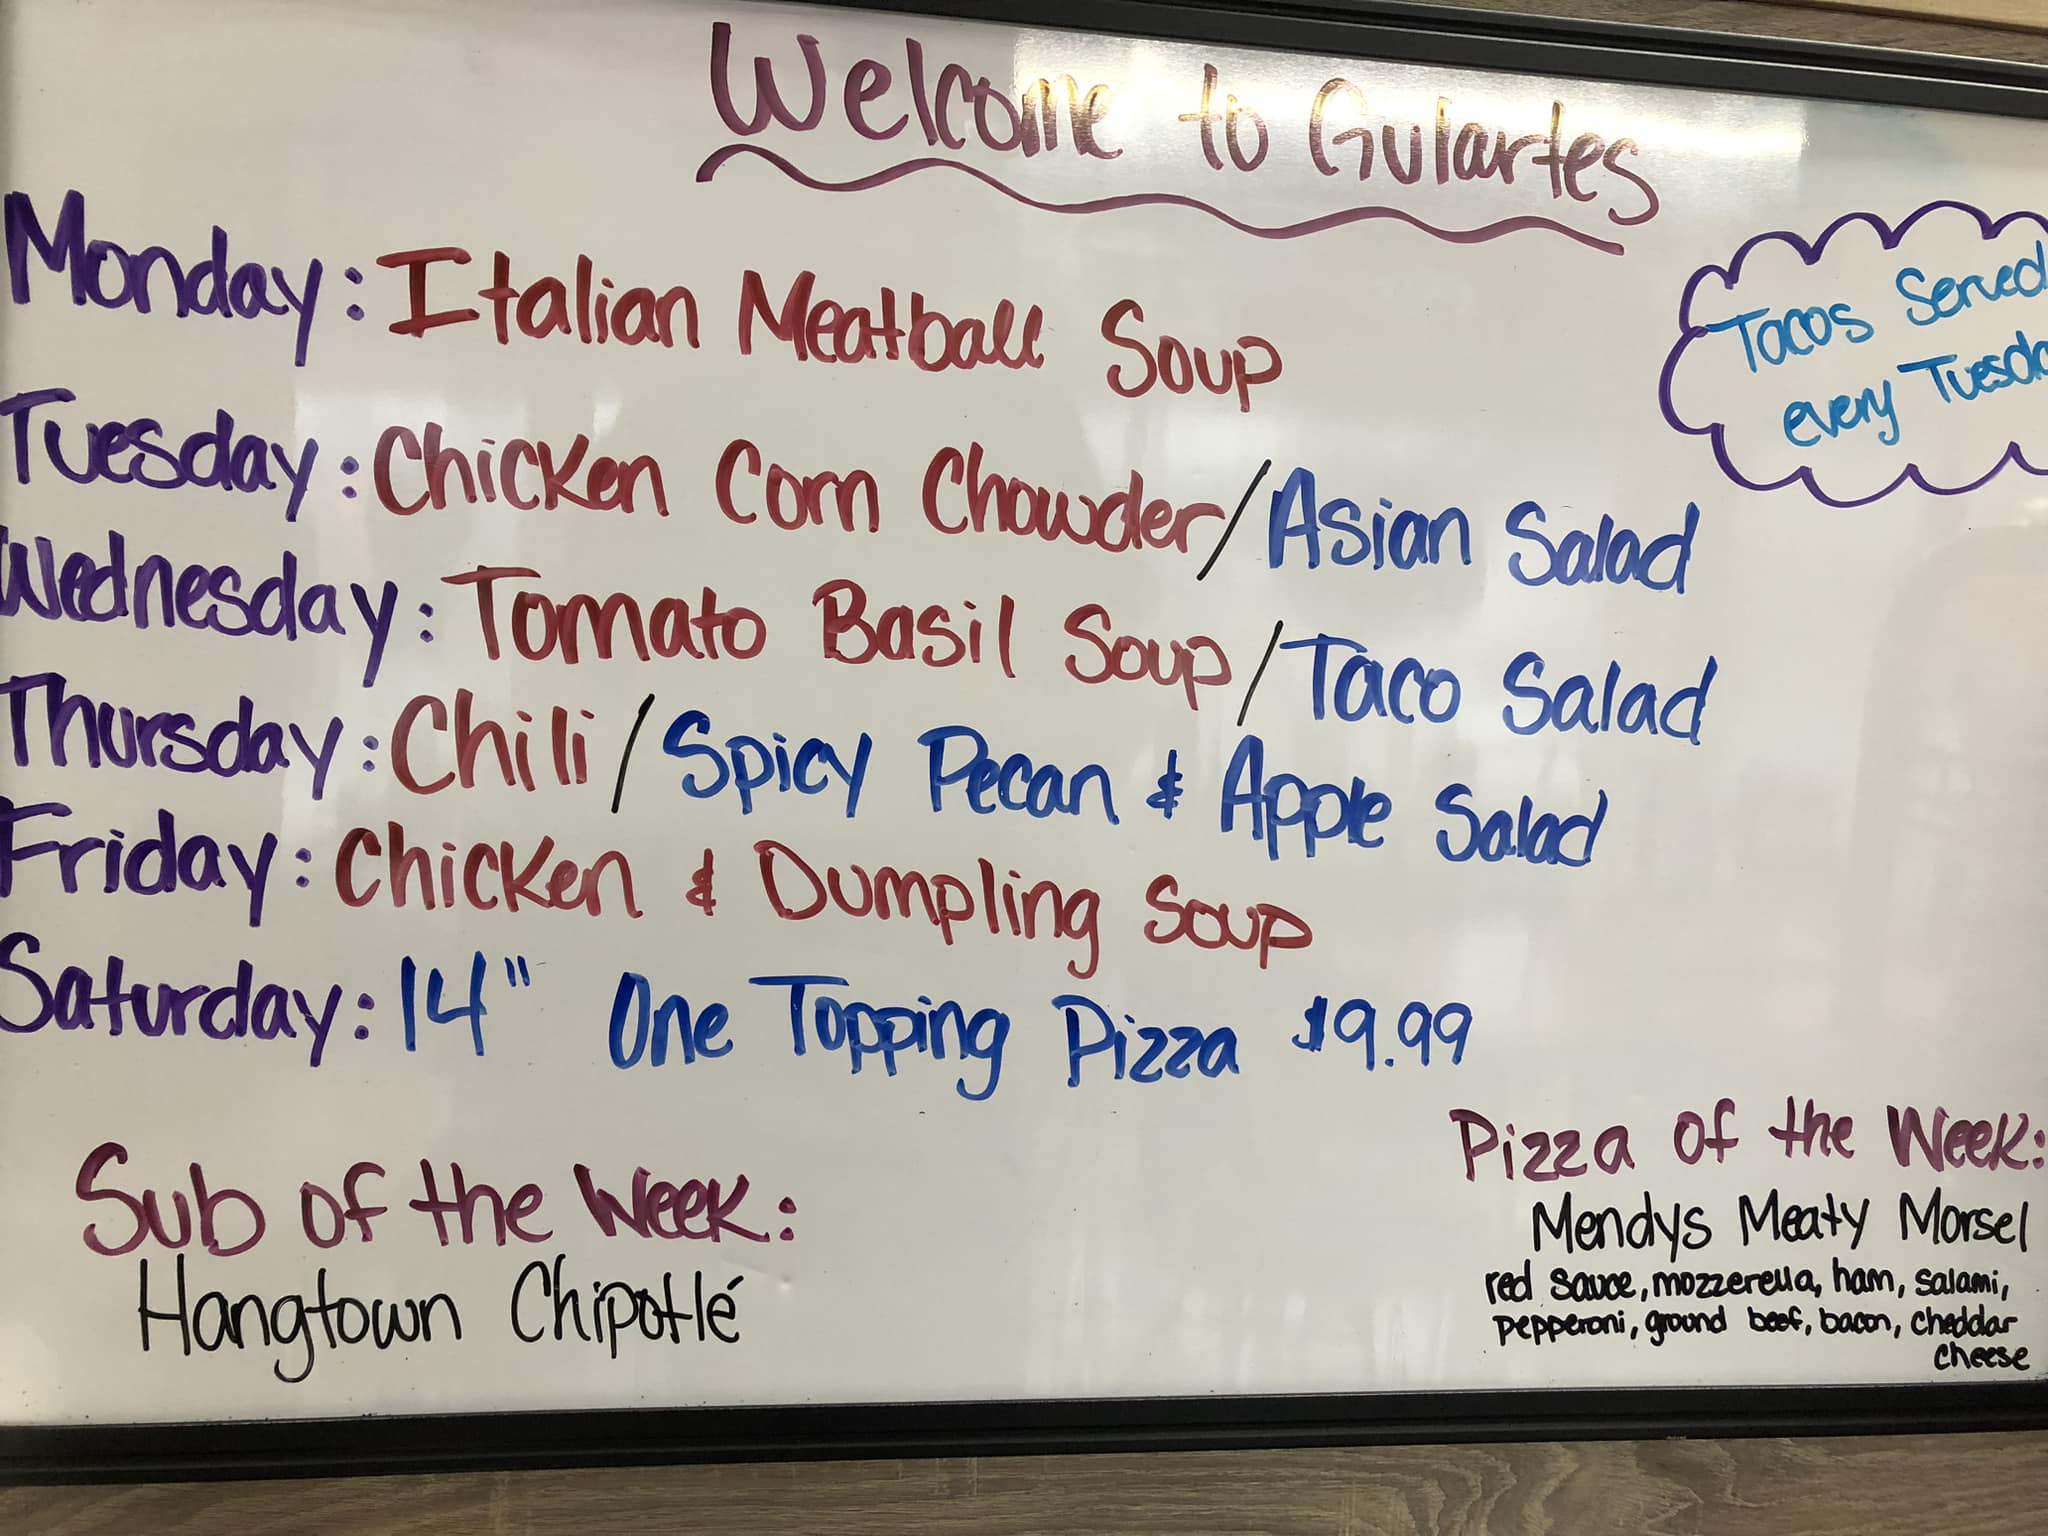 Welcome to Gulartes
Monday: Italian Meatball Soup
Tacos Served
every Tuesda
Tuesday: Chicken Corn Chowder/Asian Salad
Wednesday: Tomato Basil Soup/Taco Salad
Thursday: Chili/Spicy Pecan & Apple Salad
Friday: Chicken & Dumpling Soup
Saturday: 14" One Topping Pizza $9.99
Sub of the Week:
Hangtown Chipotlé
Pizza of the Week:
Mendys Meaty Morsel
red sauce, mozzerella, ham, salami,
pepperoni, ground beef, bacon, cheddar
cheese